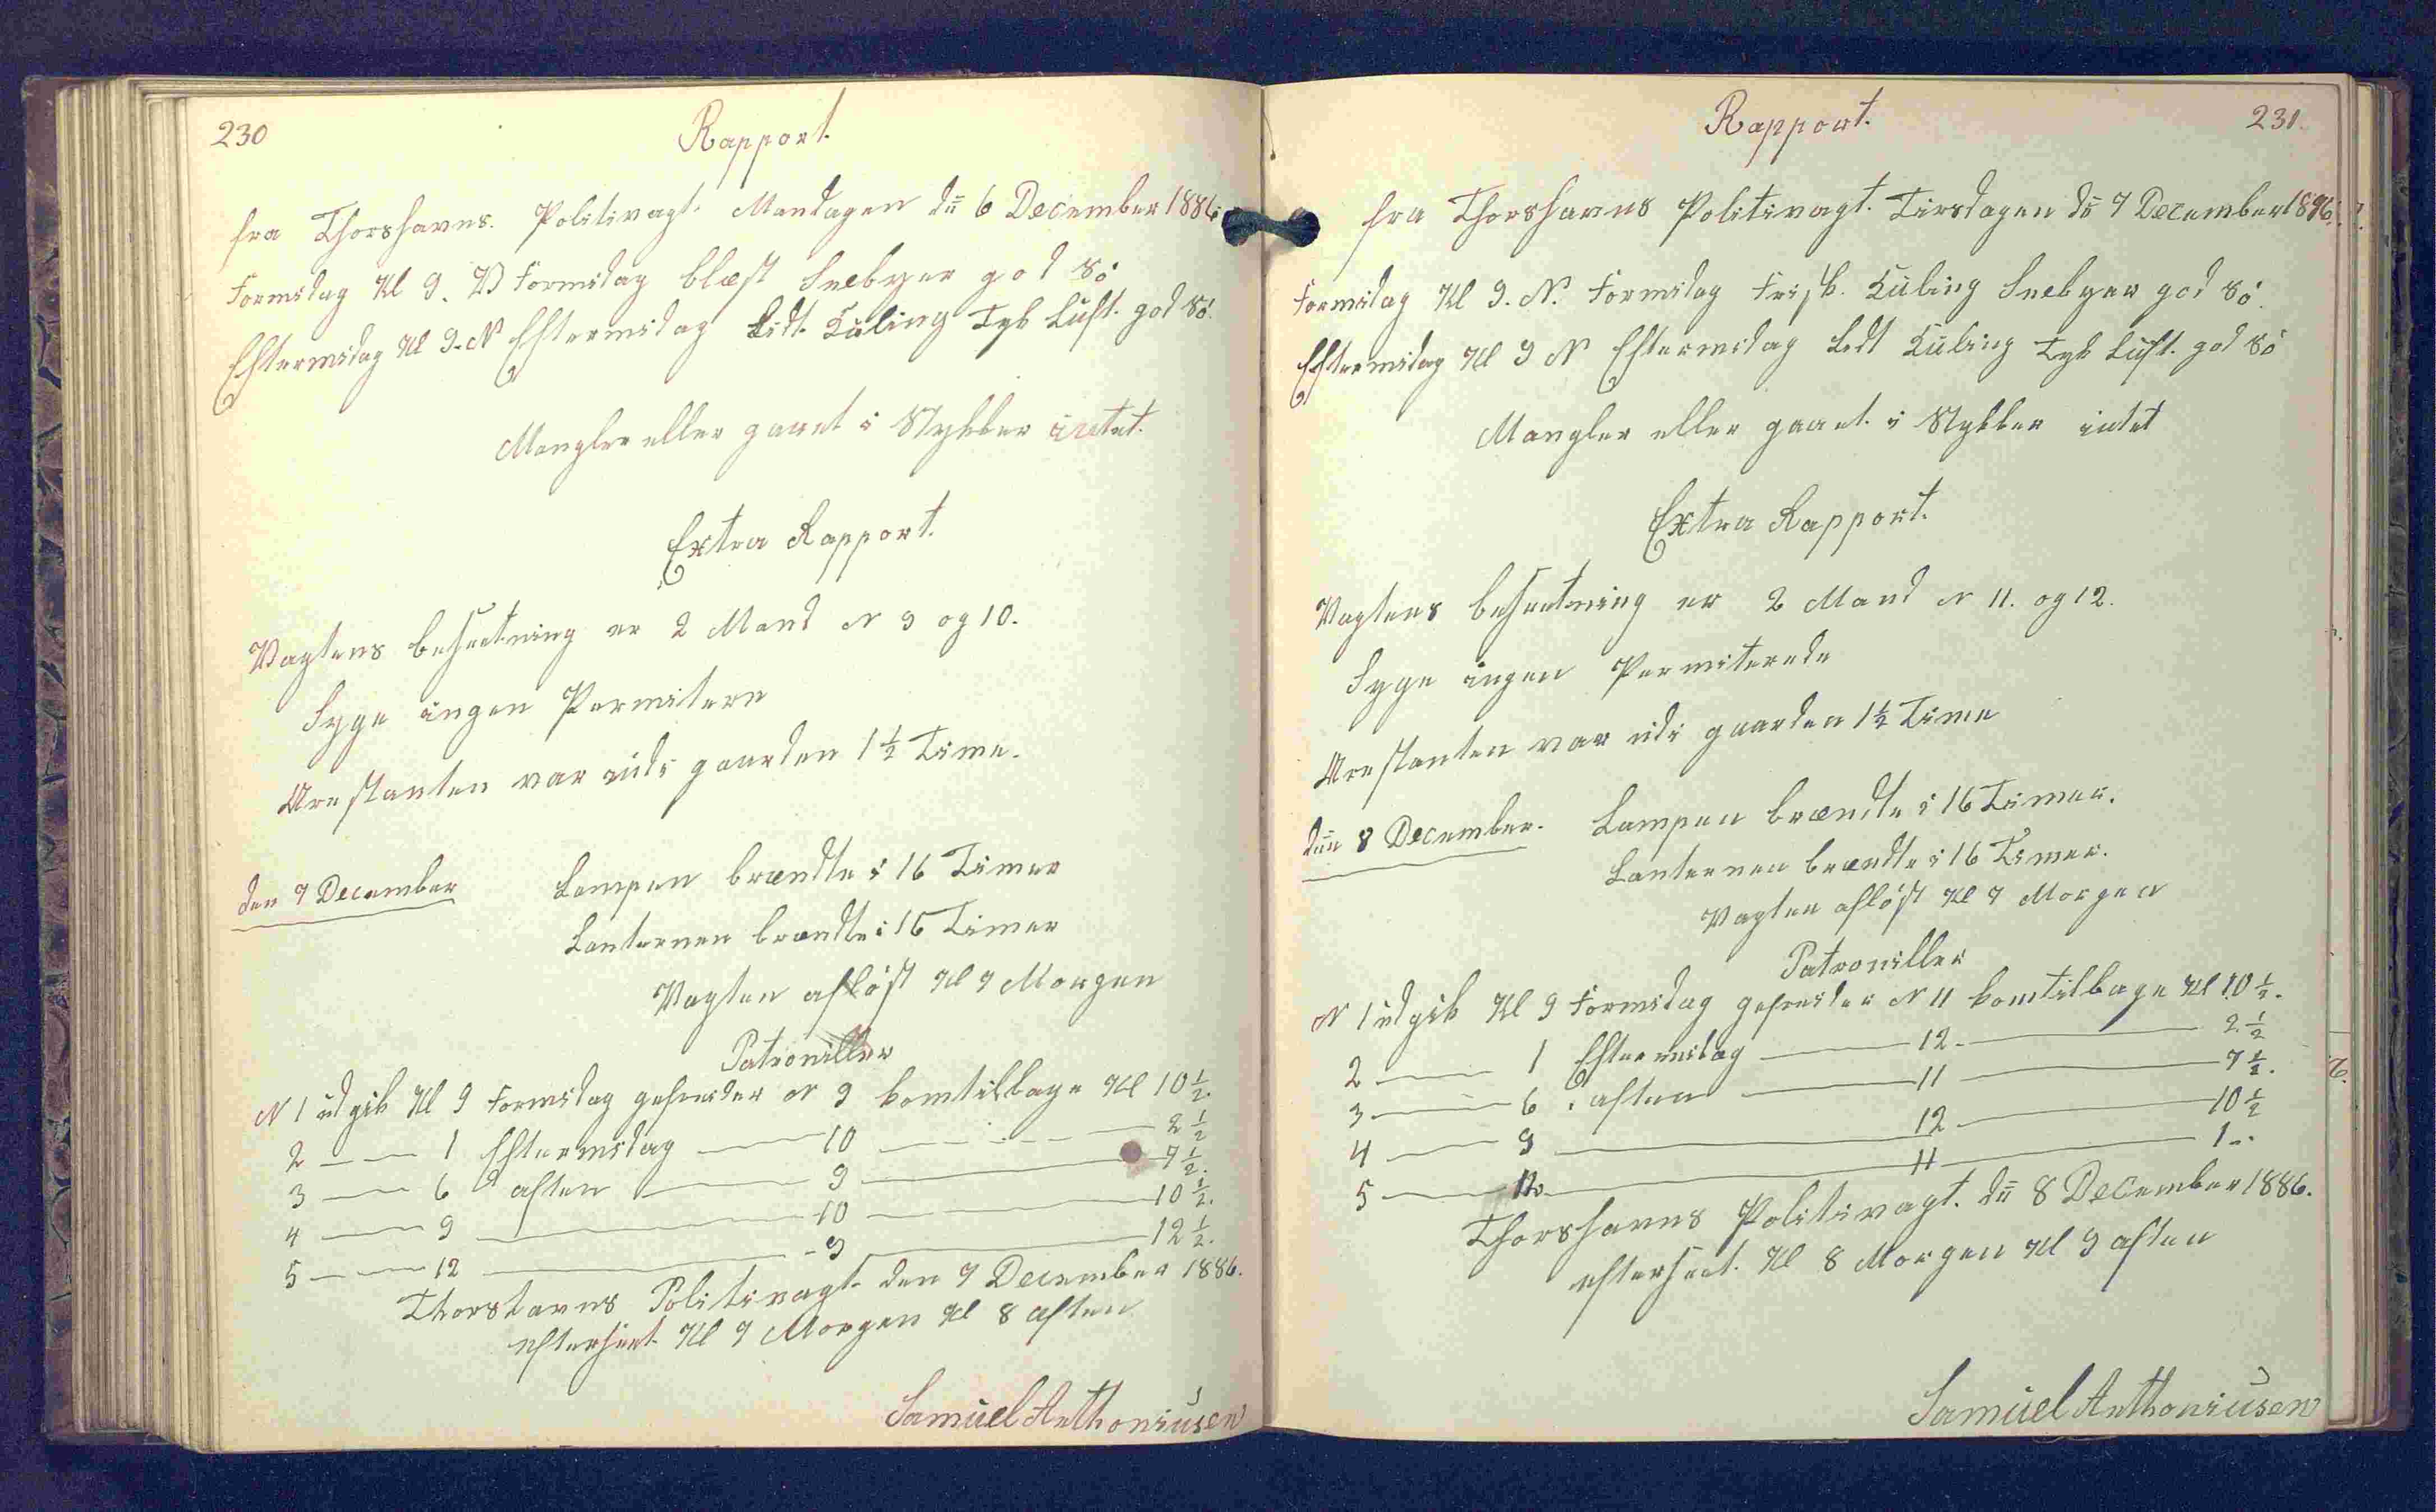 230
Rapport.
fra Thorshavns. Politivagt. Mandagen dn̄ 6 December 1886.
Formidag Kl 9. V Formidag blæst Sneebyer god Sö
Eftermidag Kl 9. N Eftermidag Lidt Kuling Tyk Luft. god Sö.
Mangler eller gaaet i Stykker intet.
Extra Rapport.
Vagtens besætning er 2 Mand N 9 og 10.
Syge ingen Permitere
Arestanten var udi gaarden 1½ Time.
den 7 December
Lampen brændte i 16 Timer
Lanternen brændte i 16 Timer
Vagten aflöst Kl 7 Morgen
Patrouiller
N 1 udgik Kl 9 Formidag gefreider N 9 komtilbage Kl 10½.
2 — 1 Eftermidag — 10 — 2½
3 — 6 aften — 9 — 7½.
4 — 9 — 10 — 10½.
5 — 12 — 9 — 12½.
Thorshavns Politivagt. den 7 December 1886.
efterseet. Kl 7 Morgen Kl 8 aften
Samuel Anthoniusen
Rapport.
231.
fra Thorshavns Politivagt. Tirsdagen dn̄ 7 December 1886.
Formidag Kl 9. N. Formidag Frisk. Kuling Sneebyer god Sö.
Eftermidag Kl 9 N Eftermidag Lidt Kuling Tyk Luft. god Sö
Mangler eller gaaet. i Stykker intet
Extra Rapport.
Vagtens besætning er 2 Mand N 11. og 12.
Syge ingen Permiterede
Arestanten var udi gaarden 1½ Time
den 8 December.
Lampen brændte i 16 Timer.
Lanternen brændte i 16 Timer.
Vagten aflöst Kl 7 Morgen
Patrouiller
N 1 udgik Kl 9 Formidag gefreider N 11 komtilbage Kl 10½.
2 — 1 Eftermidag — 12 — 2½
3 — 6 aften — 11 — 7½.
4 — 9 — 12 — 10½
5 — 12 — 11 — 1
Thorshavns Politivagt. dn̄ 8 December 1886.
efterseet. Kl 8 Morgen Kl 9 aften
Samuel Anthoniusen